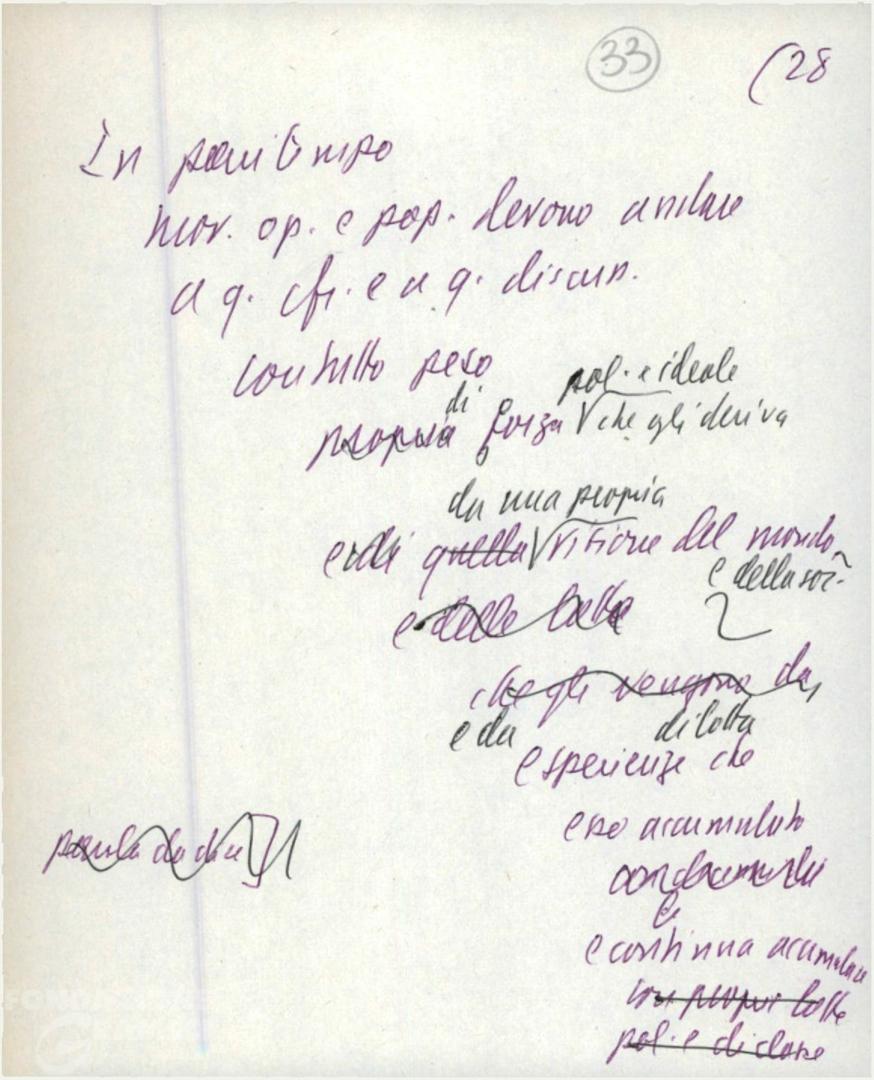 33
(28
In pari tempo
mov. op. e pop. devono andare
a q. cfr. e a q. discuss.
con tutto peso
pol. e ideale
di
propria forza che gli deriva
da una propria
e di quella visione del mondo
e della soc.
e delle lotte
che gli vengono da
e da di lotta
esperienze che
esso accumulato
e
e continua accumulare
con propri lotte
pol. e di classe